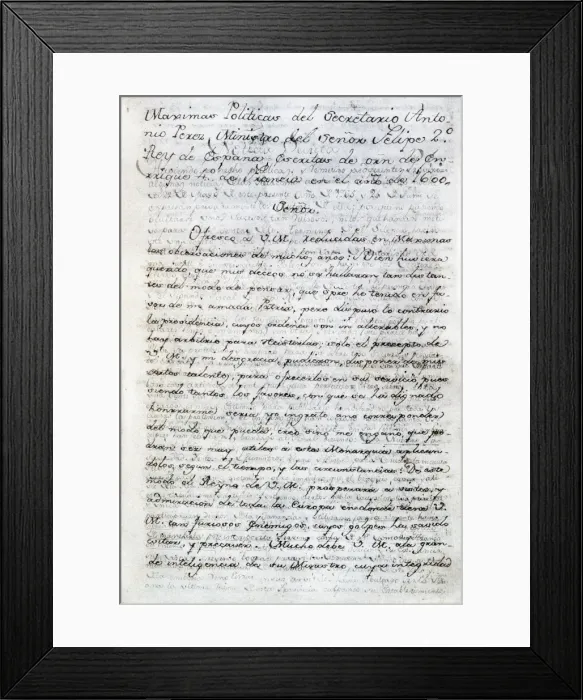 Maximas Politicas del Secretario Anto-
nio Perez, Ministro del Señor Felipe 2.º
Rey de España Escritas de orn de En-
rrique 4. de Francia en el año de 1600.
Señor.
Ofresco a V.M. reducidas en Maximas
las observaciones de muchos años: Bien hubiera
querido, que mis deceos no se hallaran tan distan-
tes del modo de pensar, que spre he tenido en fa-
vor de mi amada Patria, pero dispuso lo contrario
la providencia, cuyos ordenes son in alterables, y no
hay arbitrio para resistirlas; solo el precepto de
V. M. y mi desgracia, pudieron disponer de mis
cortos talentos, para ofrecerlos en su servicio, pues
siendo tantos los favores, con que se ha dignado
honrrarme seria yo ingrato sino correspondiera
del modo que puedo, creo sino me engaño, que po-
dran ser muy utiles a esta Monarquia aplican-
dolos, segun el tiempo, y las circunstancias: De este
modo el Reyno de V. M. prosperará a vista, y
admiracion de toda la Europa en donde tiene V.
M. tan furiosos Enemigos, cuyos golpes ha savido
evitar, y precaver. Mucho debe V. M. a la gran-
de inteligencia de su Ministro cuya integridad